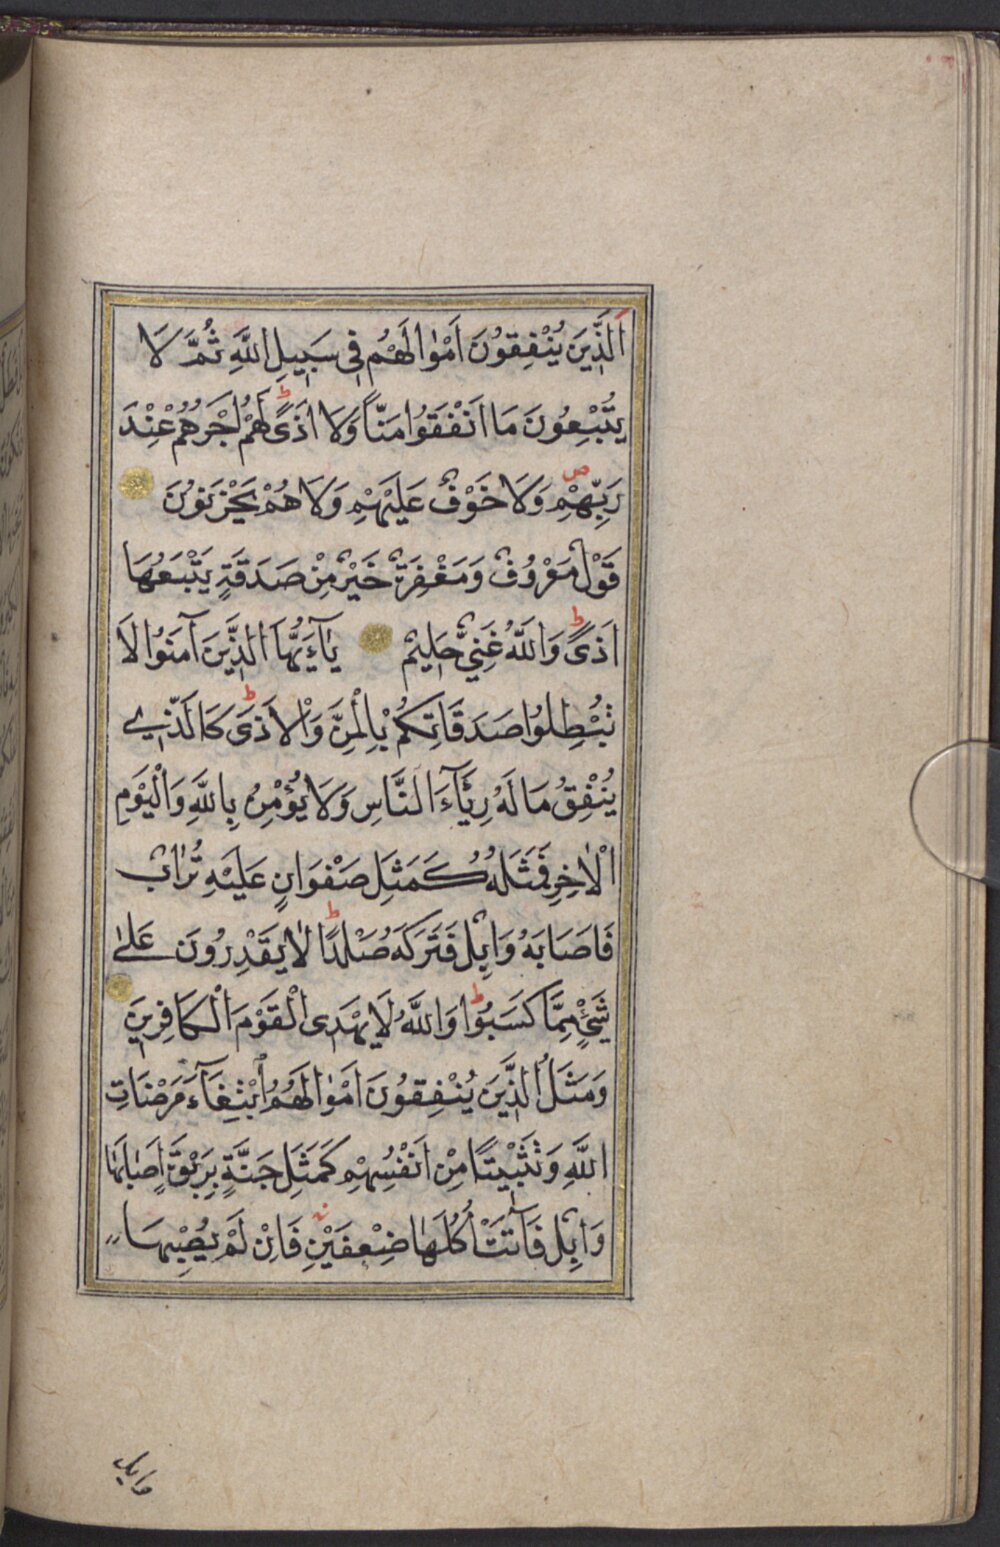 اَلَّذِينَ يُنْفِقُونَ اَمْوٰالَهُمْ فِي سَبِيلِ اللَّهِ ثُمَّ لَا
يُتْبِعُونَ مَا اَنْفَقُوا مَنًّا وَلَا اَذًىۙ لَهُمْ اَجْرُهُمْ عِنْدَ
رَبِّهِمْ وَلَا خَوْفٌ عَلَيْهِمْ وَلَا هُمْ يَحْزَنُونَ
قَوْلٌ مَعْرُوفٌ وَمَغْفِرَةٌ خَيْرٌ مِنْ صَدَقَةٍ يَتْبَعُهَا
اَذًىۗ وَاللَّهُ غَنِيٌّ حَلِيمٌ يَآءَيُّهَا الَّذِينَ آمَنُوا لَا
تُبْطِلُوا صَدَقَاتِكُمْ بِالْمَنِّ وَالْاَذٰى كَالَّذِي
يُنْفِقُ مَالَهُ رِئَآءَ النَّاسِ وَلَا يُؤْمِنُ بِاللَّهِ وَالْيَوْمِ
الْاٰخِرِ فَمَثَلُهُ كَمَثَلِ صَفْوَانٍ عَلَيْهِ تُرَابٌ
فَاَصَابَهُ وَابِلٌ فَتَرَكَهُ صَلْدًاط لَا يَقْدِرُونَ عَلىٰ
شَيْءٍ مِمَّا كَسَبُواط وَاللَّهُ لَا يَهْدِى الْقَوْمَ الْكَافِرِينَ
وَمَثَلُ الَّذِينَ يُنْفِقُونَ اَمْوٰالَهُمُ ابْتِغَآءَ مَرْضَاتِ
اللَّهِ وَتَثْبِيتًا مِنْ اَنْفُسِهِمْ كَمَثَلِ جَنَّةٍ بِرَبْوَةٍ اَصَابَهَا
وَابِلٌ فَآتَتْ اُكُلَهَا ضِعْفَيْنِ فَاِنْ لَمْ يُصِبْهَا
وابل